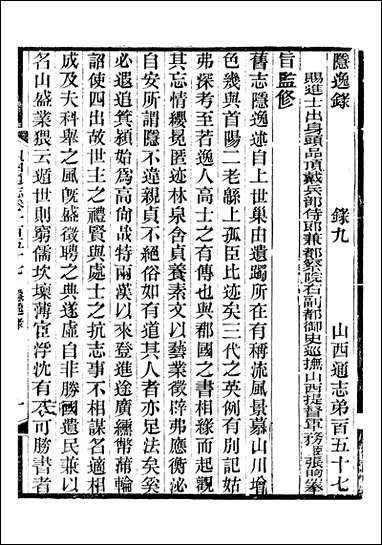 隱逸錄　　錄九　　山西通志弟百五十七
賜進士出身頭品頂戴兵部侍郎兼都察院右副都御史巡撫山西提督軍務臣張煦奉
旨監修
舊志隱逸逑自上世巢由遺躅所在有稱流風景慕山川增
色幾與首陽二老緜上孤臣比迹矣三代之英例有別記姑
弗深考至若逸人高士之有傳也與郡國之書相繼而起觀
其忘情纓冕匿迹林泉舍貞養素文以藝業徵辟弗應衡泌
自安所謂隱不違親貞不絕俗如有道其人者亦足法矣奚
必遐追箕潁始爲高尚哉特兩漢以來登進途廣纁幣蒲輪
詔使四出故世主之禮賢與處士之抗志事不相謀名適相
成及夫科舉之風旣盛徵聘之典遂虛自非勝國遺民兼以
名山盛業猥云遁世則窮儒坎壈薄宦浮沈有不可勝書者
山西通志卷一百五十七　隱逸錄　一